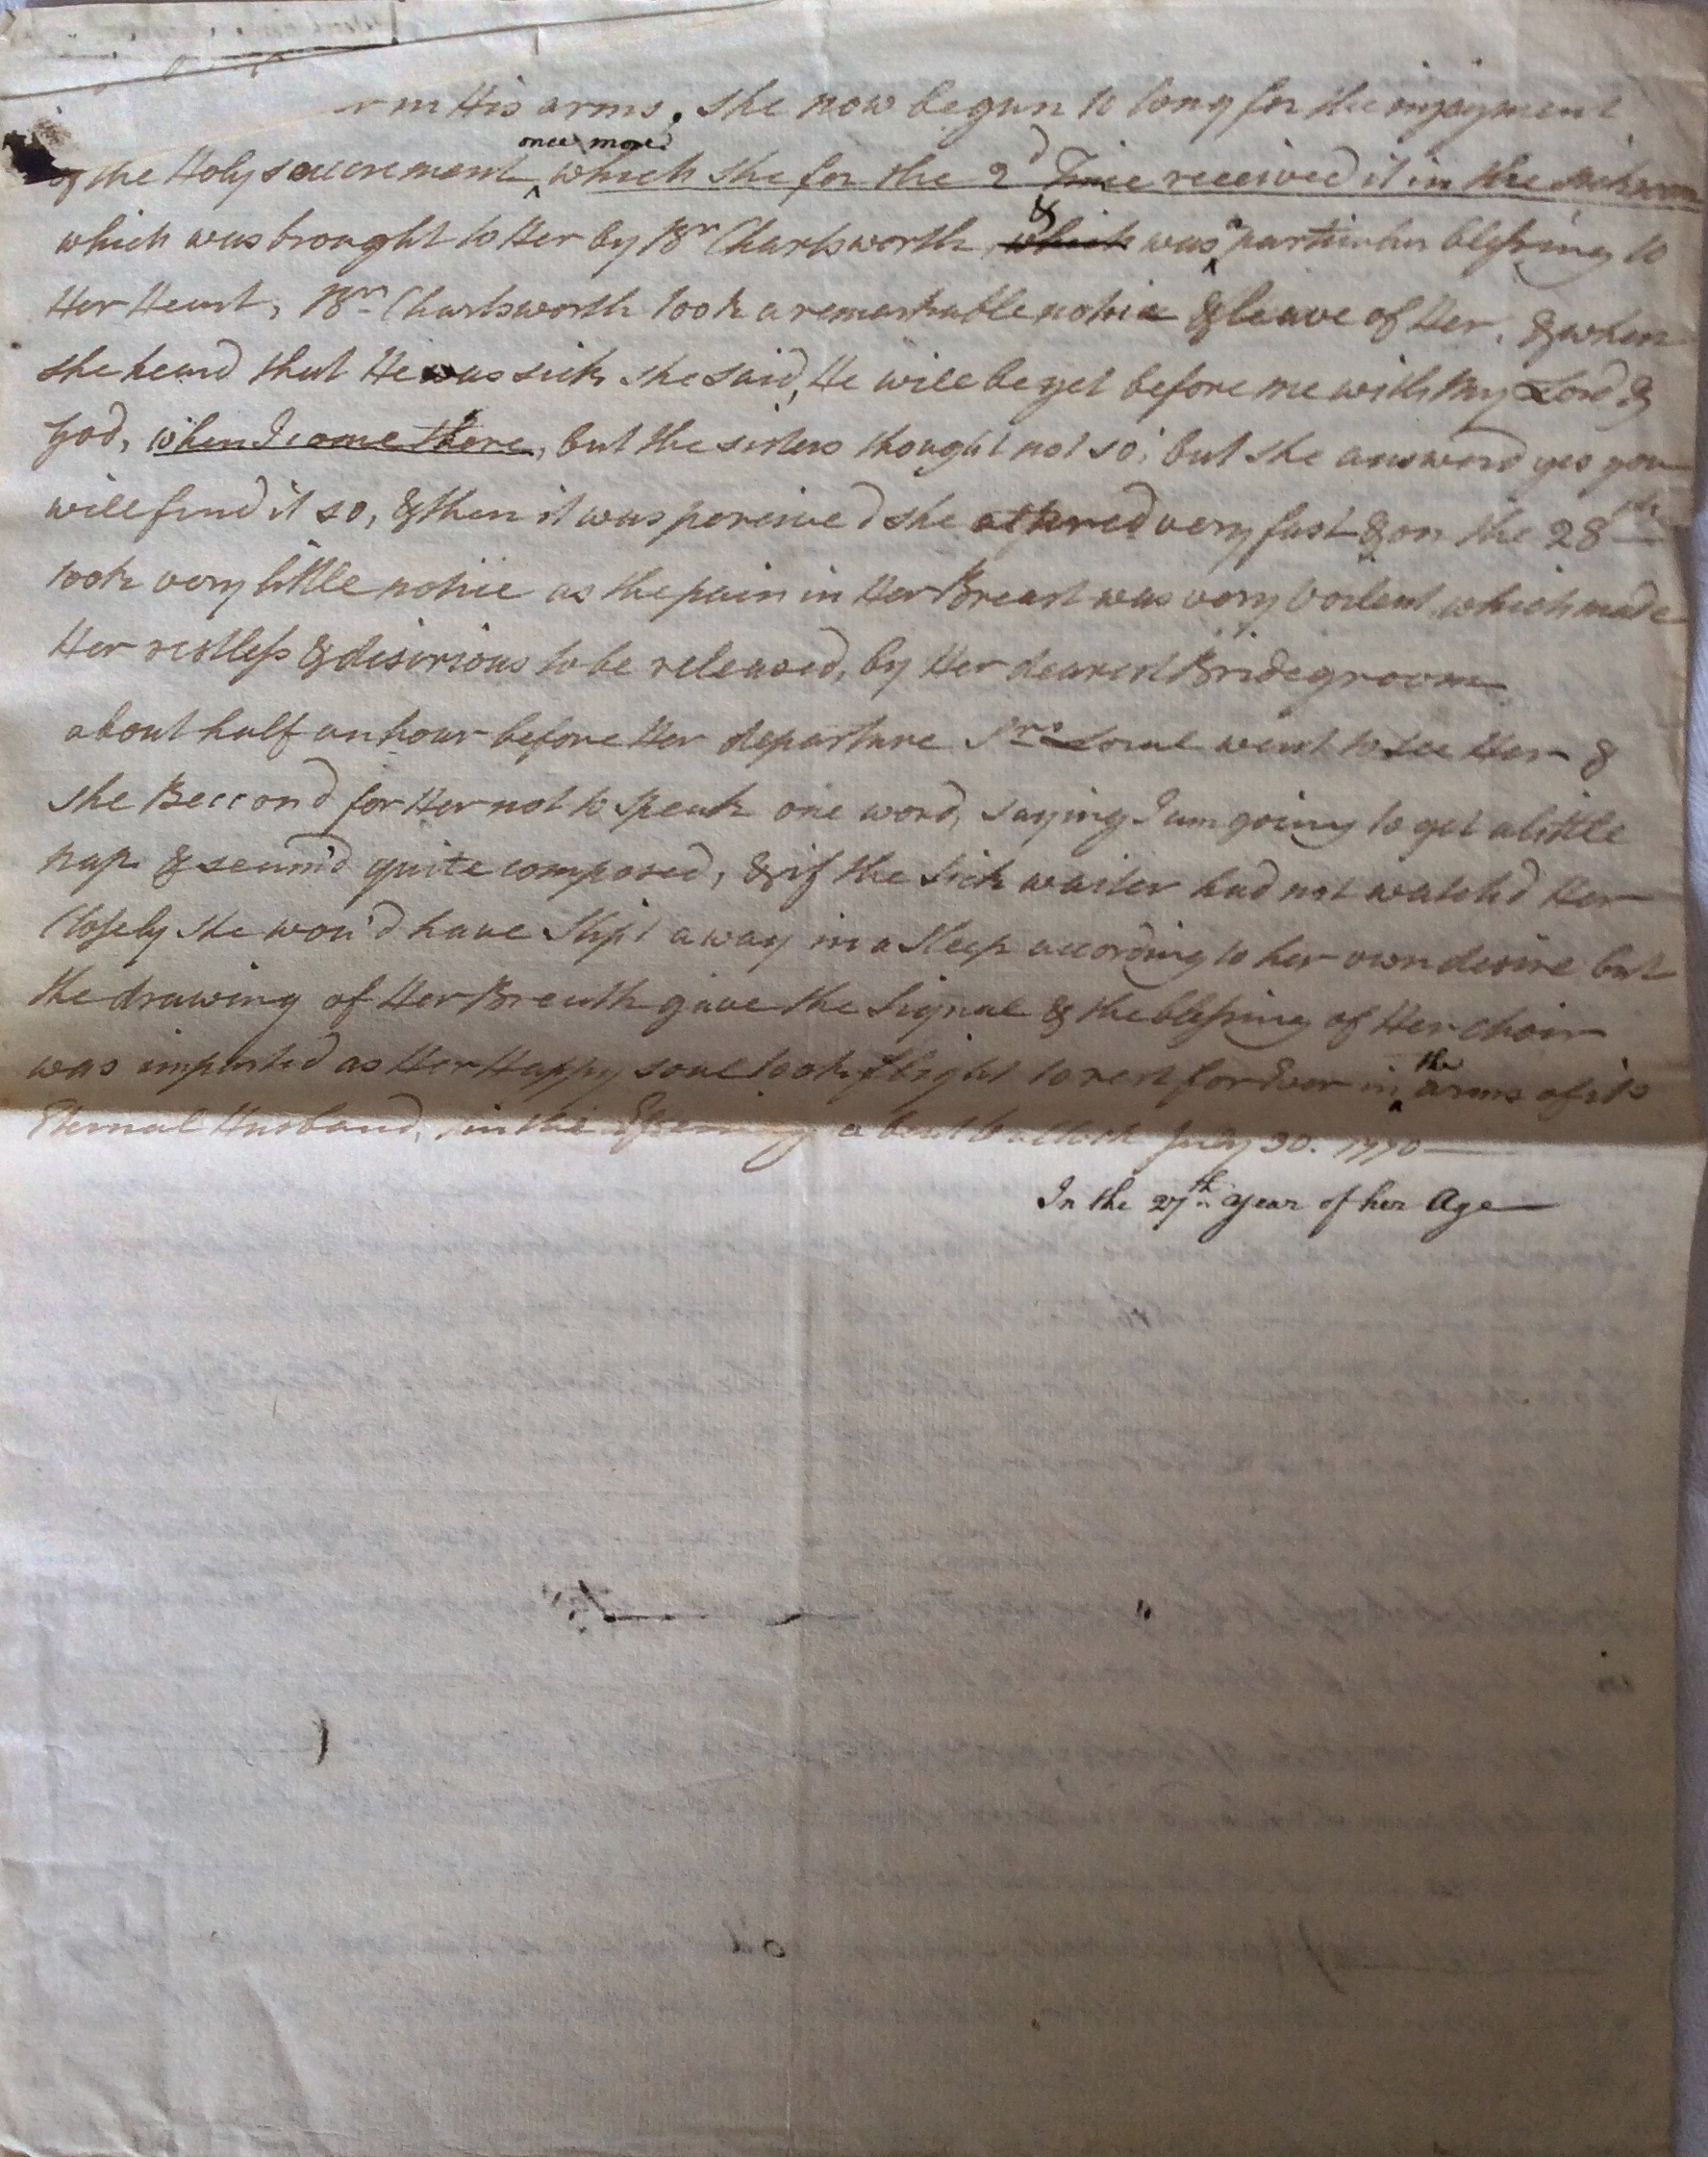 in His arms. she now begun to long for the injoyment
of the Holy sacrement once more which she for the 2d Time received it in the
which was brought to Her by Br Charlsworth, which & was a particuler blessing to
Her Heart, Br Charlsworth took a remarkable notice & leave of Her, & when
she heard that He was sick she said, He will be yet before me with My Lord &
God, when I come there, but the sisters thought not so, but she answerd yes you
will find it so, & then it was perceived she altered very fast & on the 28th
took very little notice as the pain in Her Breast was very voilent, which made
Her restless & desirious to be released, by Her dearest Bridegroom
about half an hour before Her departure Srs went to see Her &
she Beccond for Her not to speak one word, saying I am going to get a little
nap & seem'd quite composed, & if the sick waiter had not watch'd Her
Closely she wou'd have slipt away in a sleep according to her own desire but
the drawing of Her Breath gave the signal & the blessing of Her choir
was imparted as Her Happy soul took flight to rest for Ever in the arms of its
Eternal Husband, in the Evening about o clock July 30. 1770
In the 27th year of her Age